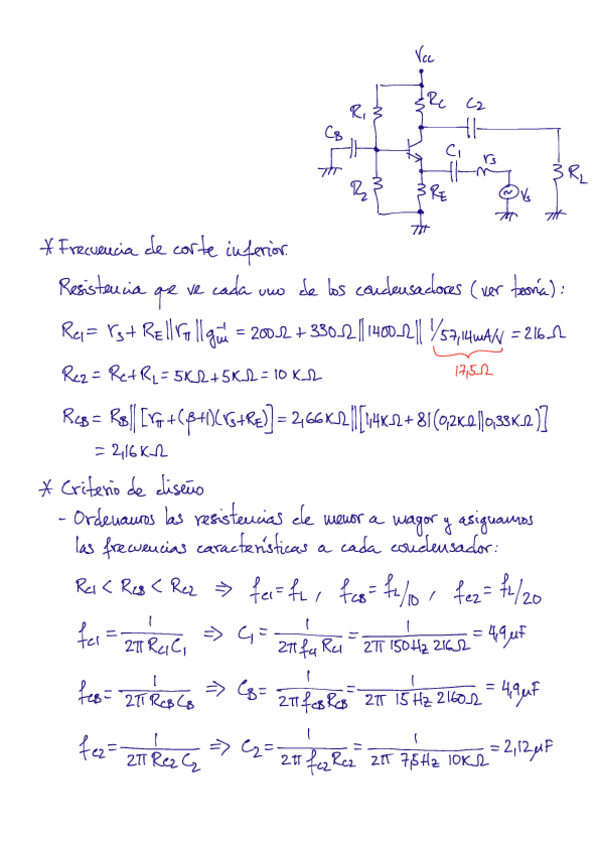 Vcc
R1
RC
C2
CB
C1
rs
R2
RE
Vs
RL
* Frecuencia de corte inferior.
Resistencia que ve cada uno de los condensadores (ver teoría):
RC1 = rs + RE || rπ || gm⁻¹ = 200Ω + 330Ω || 1400Ω || 1/57,14mA/V = 216Ω
17,5Ω
RC2 = RC + RL = 5KΩ + 5KΩ = 10 KΩ
RCB = RB || [rπ + (β+1)(rs+RE)] = 2,66KΩ || [1,4KΩ + 81(0,2KΩ || 0,33KΩ)]
= 2,16 KΩ
* Criterio de diseño
- Ordenamos las resistencias de menor a mayor y asignamos
las frecuencias características a cada condensador:
RC1 < RCB < RC2 ⇒ fC1 = fL , fCB = fL/10 , fC2 = fL/20
fC1 = 1/2π RC1 C1 ⇒ C1 = 1/2π fC1 RC1 = 1/2π 150Hz 216Ω = 4,9μF
fCB = 1/2π RCB CB ⇒ CB = 1/2π fCB RCB = 1/2π 15 Hz 2160Ω = 4,9μF
fC2 = 1/2π RC2 C2 ⇒ C2 = 1/2π fC2 RC2 = 1/2π 7,5Hz 10KΩ = 2,12μF